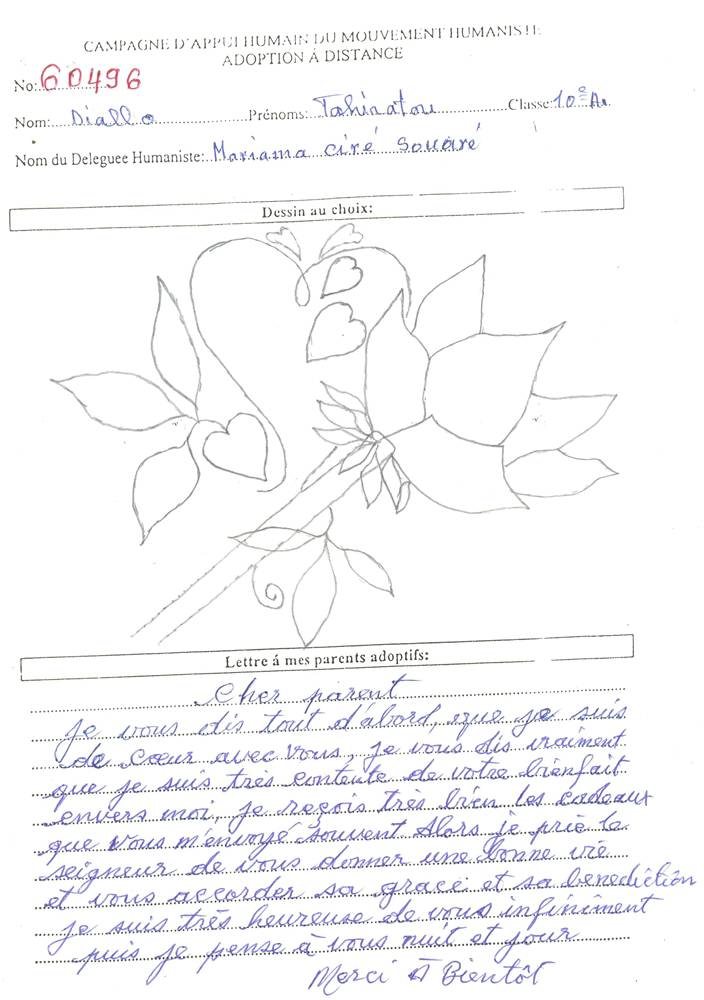 CAMPAGNE D'APPUI HUMAIN DU MOUVEMENT HUMANISTE
ADOPTION Á DISTANCE
No: 60496
Nom: Diallo Prénoms: Tahiratou Classe: 10è A.
Nom du Deleguee Humaniste: Mariama ciré Souaré
Dessin au choix:
Lettre á mes parents adoptifs:
Cher parent
Je vous dis tout d'abord, que je suis
de cœur avec vous, je vous dis vraiment
que je suis très contente de votre bienfait
envers moi, je reçois très bien les cadeaux
que vous m'envoyé souvent Alors je prie le
seigneur de vous donner une bonne vie
et vous accorder sa grace et sa benediction
je suis très heureuse de vous infiniment
puis je pense à vous nuit et jour
Merci À Bientôt